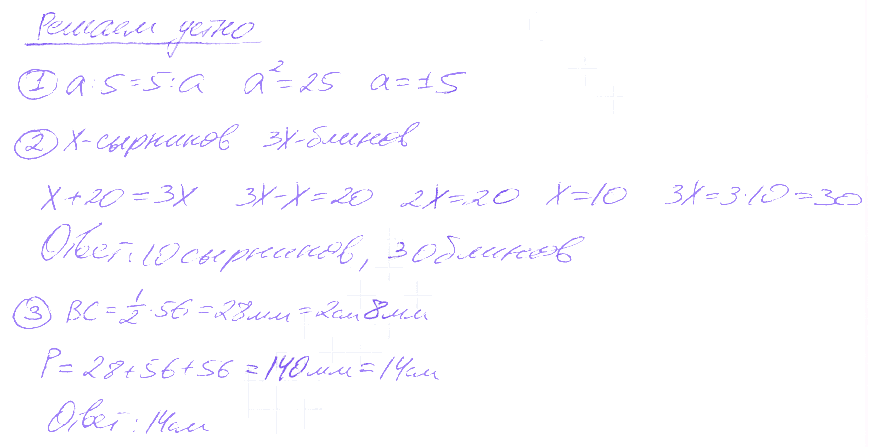 Решаем устно
① a:5=5:a a²=25 a=±5
② x-сырников 3x-блинов
x+20=3x 3x-x=20 2x=20 x=10 3x=3·10=30
Ответ: 10 сырников, 30 блинов
③ BC=½·56=28мм=2см8мм
P=28+56+56=140мм=14см
Ответ: 14см